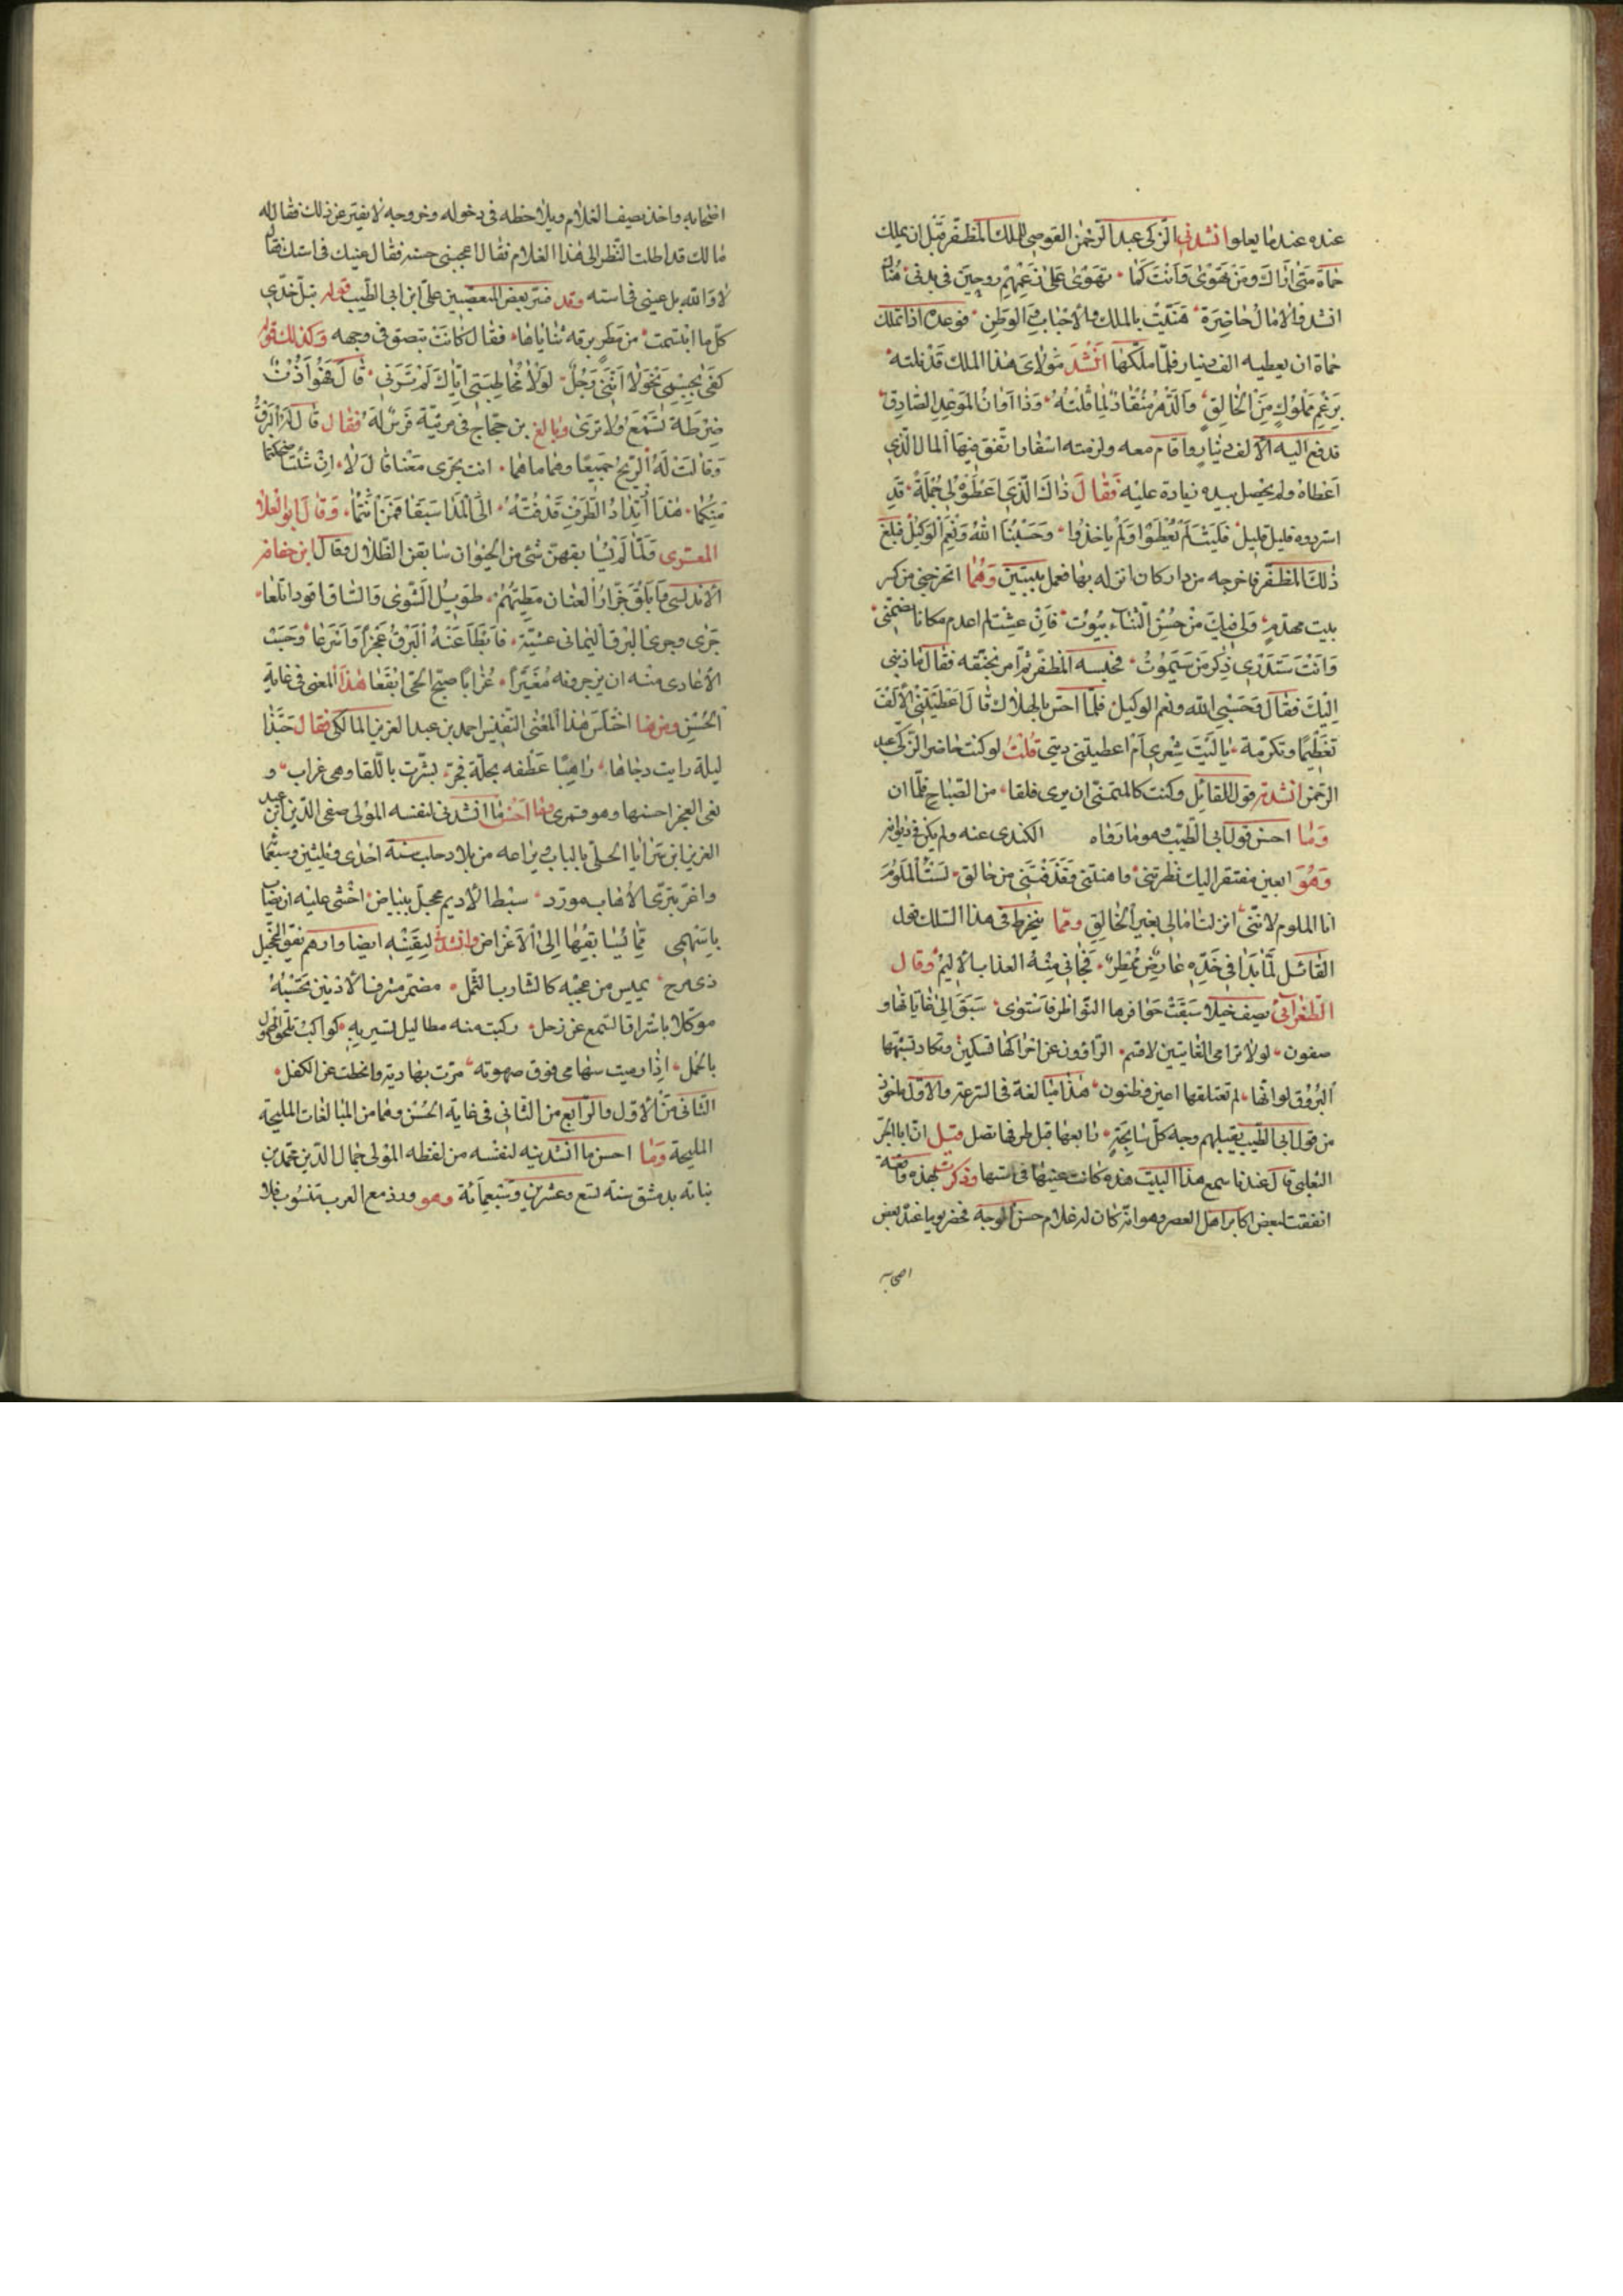 عنده عندما يعلوا انشدني الزكى عبد الرحمن القوصى للملك المظفر قبل ان يملك
حماة متى اراك ومن تهوى وانت كما ۰ تهوى على زعمهم روحين في بدن ۰ هناك
انشد والامال حاضرة ۰ هنيت بالملك والاحباب والوطن ۰ فوعده اذا تملك
حماة ان يعطيه الف دينار فلما ملكها انشد مولاى هذا الملك قد نلته ۰
برغم مخلوق من الخالق ۰ والدهر منقاد لما قلته ۰ وذا اوان الموعد الصادق ۰
فدفع اليه الالف دينار واقام معه ولزمته اسفار انفق فيها المال الذي
اعطاه ولم يحصل بيده زيادة عليه فقال ذاك الذي اعطوه لى جملة ۰ قد
استردوه قليل قليل ۰ فليت لم يعطوا ولم ياخذوا ۰ وحسبنا الله ونعم الوكيل فبلغ
ذلك المظفر فاخرجه من دار كان انزله بها فعمل بيتين وهما اتخرجني من كسر
بيت مهدم ۰ ولى فيك من حسن الثناء بيوت ۰ فان عشت لم اعدم مكانا يضمني ۰
وانت ستدري ذكر من سيموت ۰ فحبسه المظفر ثم امر بخنقه فقال ما ذنبي
اليك فقال وحسبي الله ونعم الوكيل فلما احس بالهلاك قال اعطيتني الالف
تعظيما وتكرمة ۰ يا ليت شعري ام اعطيتني ديتي قلت لو كنت حاضر الزكى عبد
الرحمن انشدته قول القائل وكنت كالمتمنى ان يرى فلقا ۰ من الصباح فلما ان
وما احسن قول ابى الطيب وهو ما رواه الكندى عنه ولم يكن في ديوانه
وهو ابعين مفتقر اليك نظرتني ۰ واهنتني وقذفتني من حالق ۰ لست الملوم
انا الملوم لانني ۰ انزلت امالى بغير الخالق ومما ينخرط في هذا السلك قول
القائل لما بدا في خده عارض ممطر ۰ فجاني منه العذاب الاليم وقال
الطغرآئى يصف خيلا سبقت حوافرها النواظر فاستوى ۰ سبق الى غاياتها و
صفون ۰ لولا ترامى الغايتين لاقسم ۰ الراؤون عن احراكها تسكين وتكاد تشبهها
البروق لو انها ۰ لم تعتلقها اعين وظنون ۰ هذا مبالغة في السرعة والاول ماخوذ
من قول ابى الطيب يقبلهم وجه كل سابحة ۰ اربعها قبل طرفها تصل قيل ان ابا البحر
الثعلبى قال عندما سمع هذا البيت هذه كانت عينها فى استها وذكرت بهذه واقعة
اتفقت لبعض اكابر اهل العصر وهو انه كان له غلام حسن الوجه فحضر يوما عند بعض
اصحابه
اصحابه واخذ يصف الغلام ويلاحظه فى دخوله وخروجه لا يفتر عن ذلك فقال له
مالك قد اطلت النظر الى هذا الغلام فقال اعجبني حسنه فقال عينك في استك فقال
لا والله بل عينى فى استه وقد فسر بعض المتعصبين على ابن ابى الطيب قوله تبل خدى
كلما ابتسمت ۰ من مطر برقه ثناياها ۰ فقال كانت تبصق في وجهه وكذلك قوله
كفى بجسمي نحولا اننى رجل ۰ لولا مخاطبتى اياك لم ترني ۰ قال هو اذن
ضرطة تسمع ولا ترى وبالغ بن حجاج في مرثية فرس له فقال قال له البرق
وقالت له الريح جميعا وهما ما هما ۰ انت تجرى معنا قال لا ۰ ان شئت اضحكتكما
منكما ۰ هذا ارتداد الطرف قد فته ۰ الى المدا سبقا فمن انتما ۰ وقال ابو العلا
المعرى ولما لم يسابقهن شئ من الحيوان سابقن الظلال وقال ابن خفاجه
الاندلسى وابلق خوار العنان مطهم ۰ طويل الشوى والساق اقود اتلعا ۰
جرى وجرى البرق اليمانى عشية ۰ فابطا عنه البرق عجزا واسرعا ۰ وحسب
الاعادى منه ان يزجرونه مغيرا ۰ غرابا صبح الحى ابقعا هذا المعنى في غاية
الحسن ومنها اختلس هذا المعنى النفيس احمد بن عبد العزيز المالكى فقال حبذا
ليلة رايت دجاها ۰ راهبا عطفه بحلة فجر ۰ بشرت باللقا وهى غراب ۰ و
لغى العجز احسنها وهو قمرى وما احسن ما انشدنى لنفسه المولى صفى الدين عبد
العزيز ابن سرايا الحلى بالباب وبزاعه من بلاد حلب سنة احدى وثلثين وسبعما
واغر تبرى الاهاب مورد ۰ سبط الاديم محجل ببياض ۰ اخشى عليه ان يصاب
باسهمى مما يسابقها الى الاغراض وانشدنى لنفسه ايضا وادهم يقق التحجيل
ذى مرح ۰ يميس من عجبه كالشارب الثمل ۰ مضمر مشرف الاذنين تحسبه
موكلا باستراق السمع عن زحل ۰ ركبت منه مطا ليل تسير به ۰ كواكب تلحق المحمول
بالحمل ۰ اذا رميت سهامى فوق صهوته ۰ مرت بهاديه وانحطت عن الكفل ۰
الثانى من الاول والرابع من الثانى في غاية الحسن وهما من المبالغات المليحة
المليحة وما احسن ما انشدنيه لنفسه من لفظه المولى جمال الدين محمد بن
نباته بدمشق سنة تسع وعشرين وسبعمائة وهو ورد مع العرب تنسوب فلا